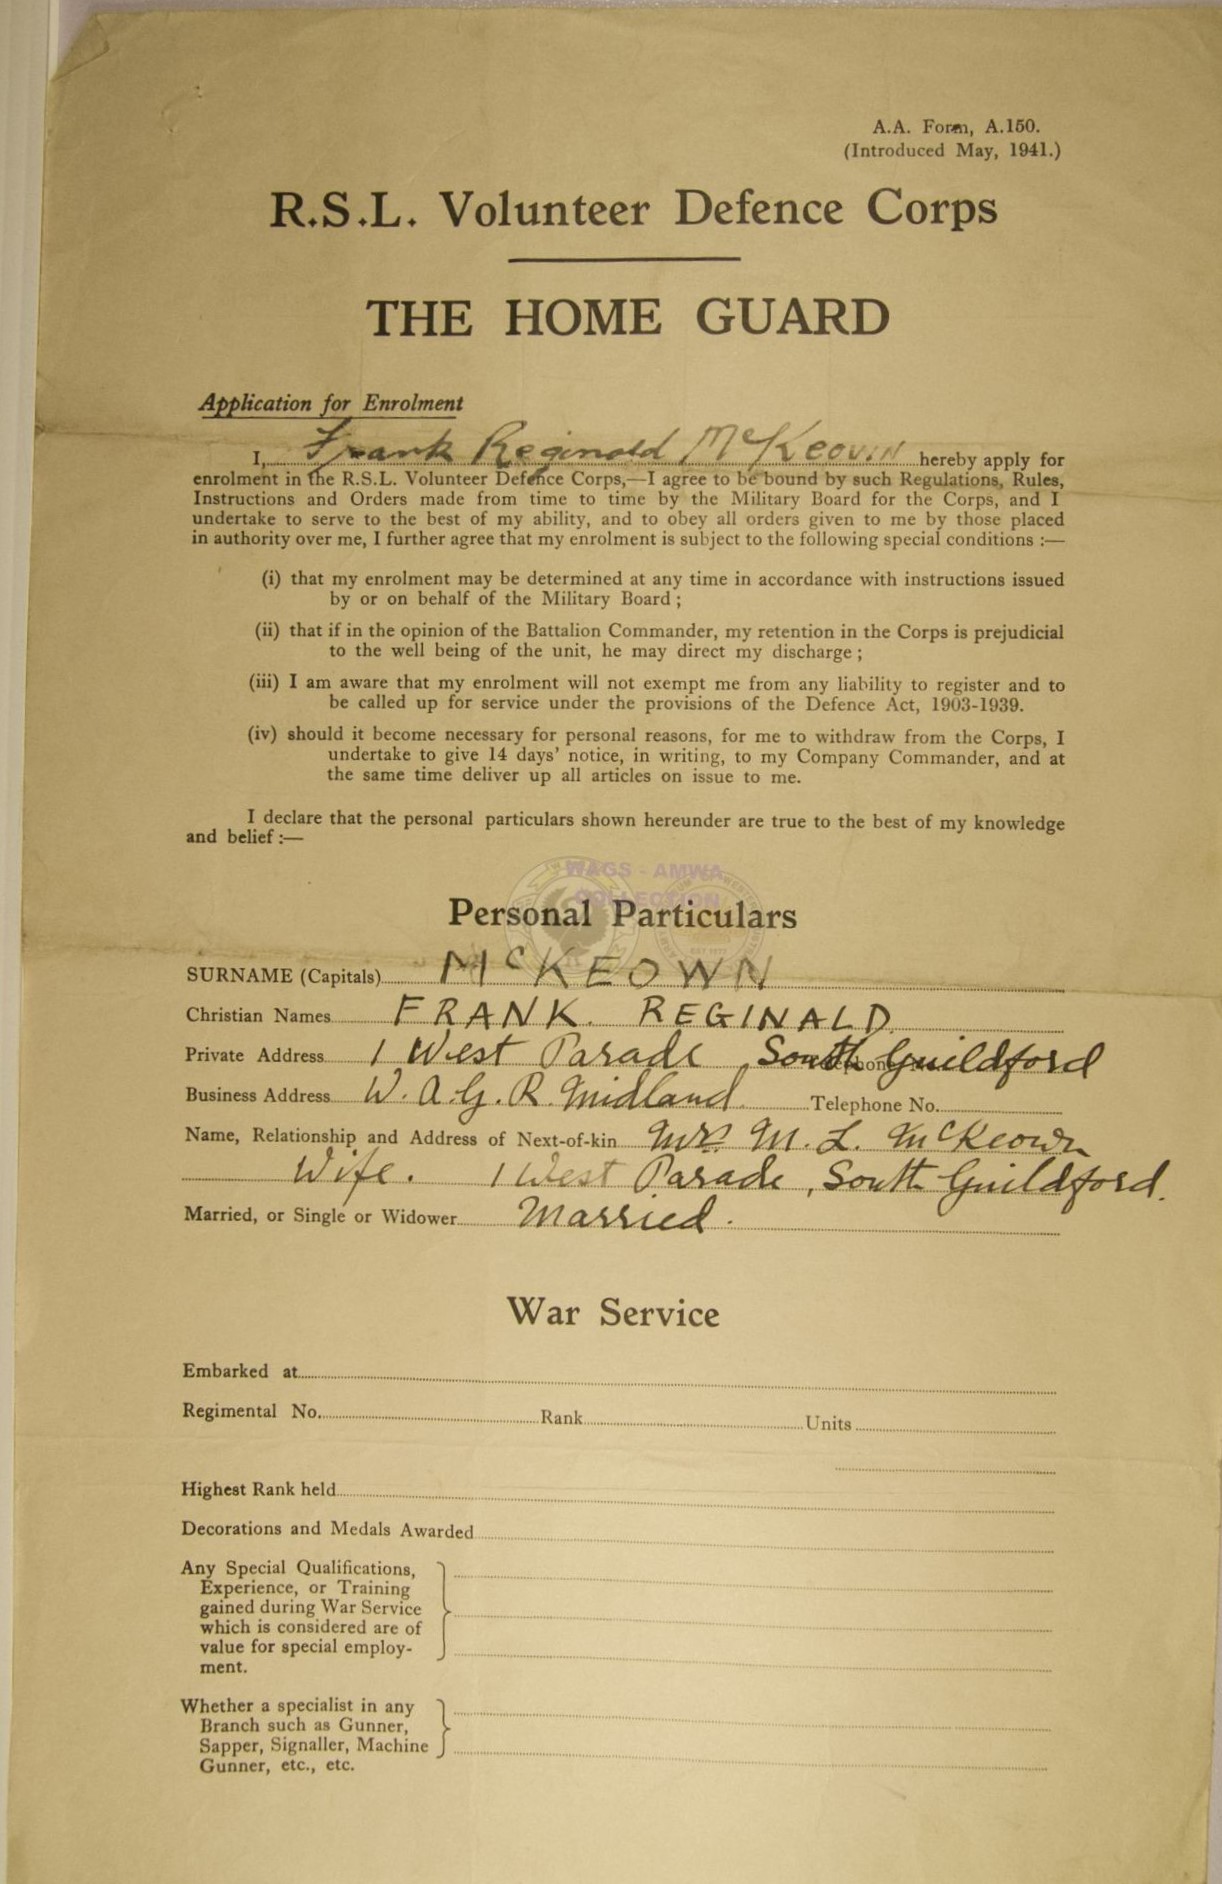 A.A. Form, A.150.
(Introduced May, 1941.)
R.S.L. Volunteer Defence Corps
THE HOME GUARD
Application for Enrolment
I, Frank Reginald McKeown hereby apply for
enrolment in the R.S.L. Volunteer Defence Corps,—I agree to be bound by such Regulations, Rules,
Instructions and Orders made from time to time by the Military Board for the Corps, and I
undertake to serve to the best of my ability, and to obey all orders given to me by those placed
in authority over me, I further agree that my enrolment is subject to the following special conditions :—
(i) that my enrolment may be determined at any time in accordance with instructions issued
by or on behalf of the Military Board ;
(ii) that if in the opinion of the Battalion Commander, my retention in the Corps is prejudicial
to the well being of the unit, he may direct my discharge ;
(iii) I am aware that my enrolment will not exempt me from any liability to register and to
be called up for service under the provisions of the Defence Act, 1903-1939.
(iv) should it become necessary for personal reasons, for me to withdraw from the Corps, I
undertake to give 14 days' notice, in writing, to my Company Commander, and at
the same time deliver up all articles on issue to me.
I declare that the personal particulars shown hereunder are true to the best of my knowledge
and belief :—
WAGS - AMWA
COLLECTION
Personal Particulars
SURNAME (Capitals) McKEOWN
Christian Names FRANK. REGINALD
Private Address 1 West Parade South Guildford
Business Address W.A.G.R. Midland. Telephone No.
Name, Relationship and Address of Next-of-kin Mrs. M. L. McKeown
Wife. 1 West Parade, South Guildford.
Married, or Single or Widower Married.
War Service
Embarked at
Regimental No. Rank Units
Highest Rank held
Decorations and Medals Awarded
Any Special Qualifications,
Experience, or Training
gained during War Service
which is considered are of
value for special employ-
ment.
Whether a specialist in any
Branch such as Gunner,
Sapper, Signaller, Machine
Gunner, etc., etc.